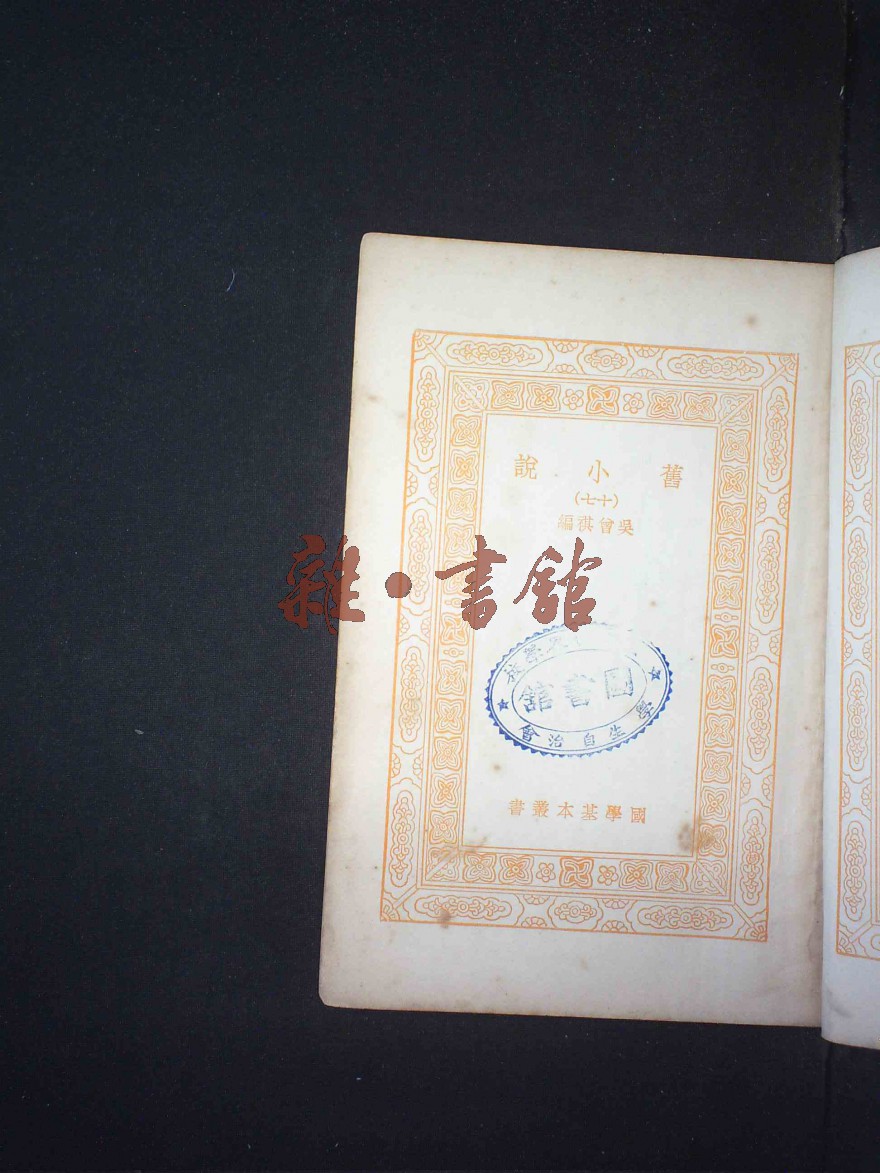 舊小說
(十七)
吳曾祺編
雜·書館
圖書館
學生自治會
國學基本叢書